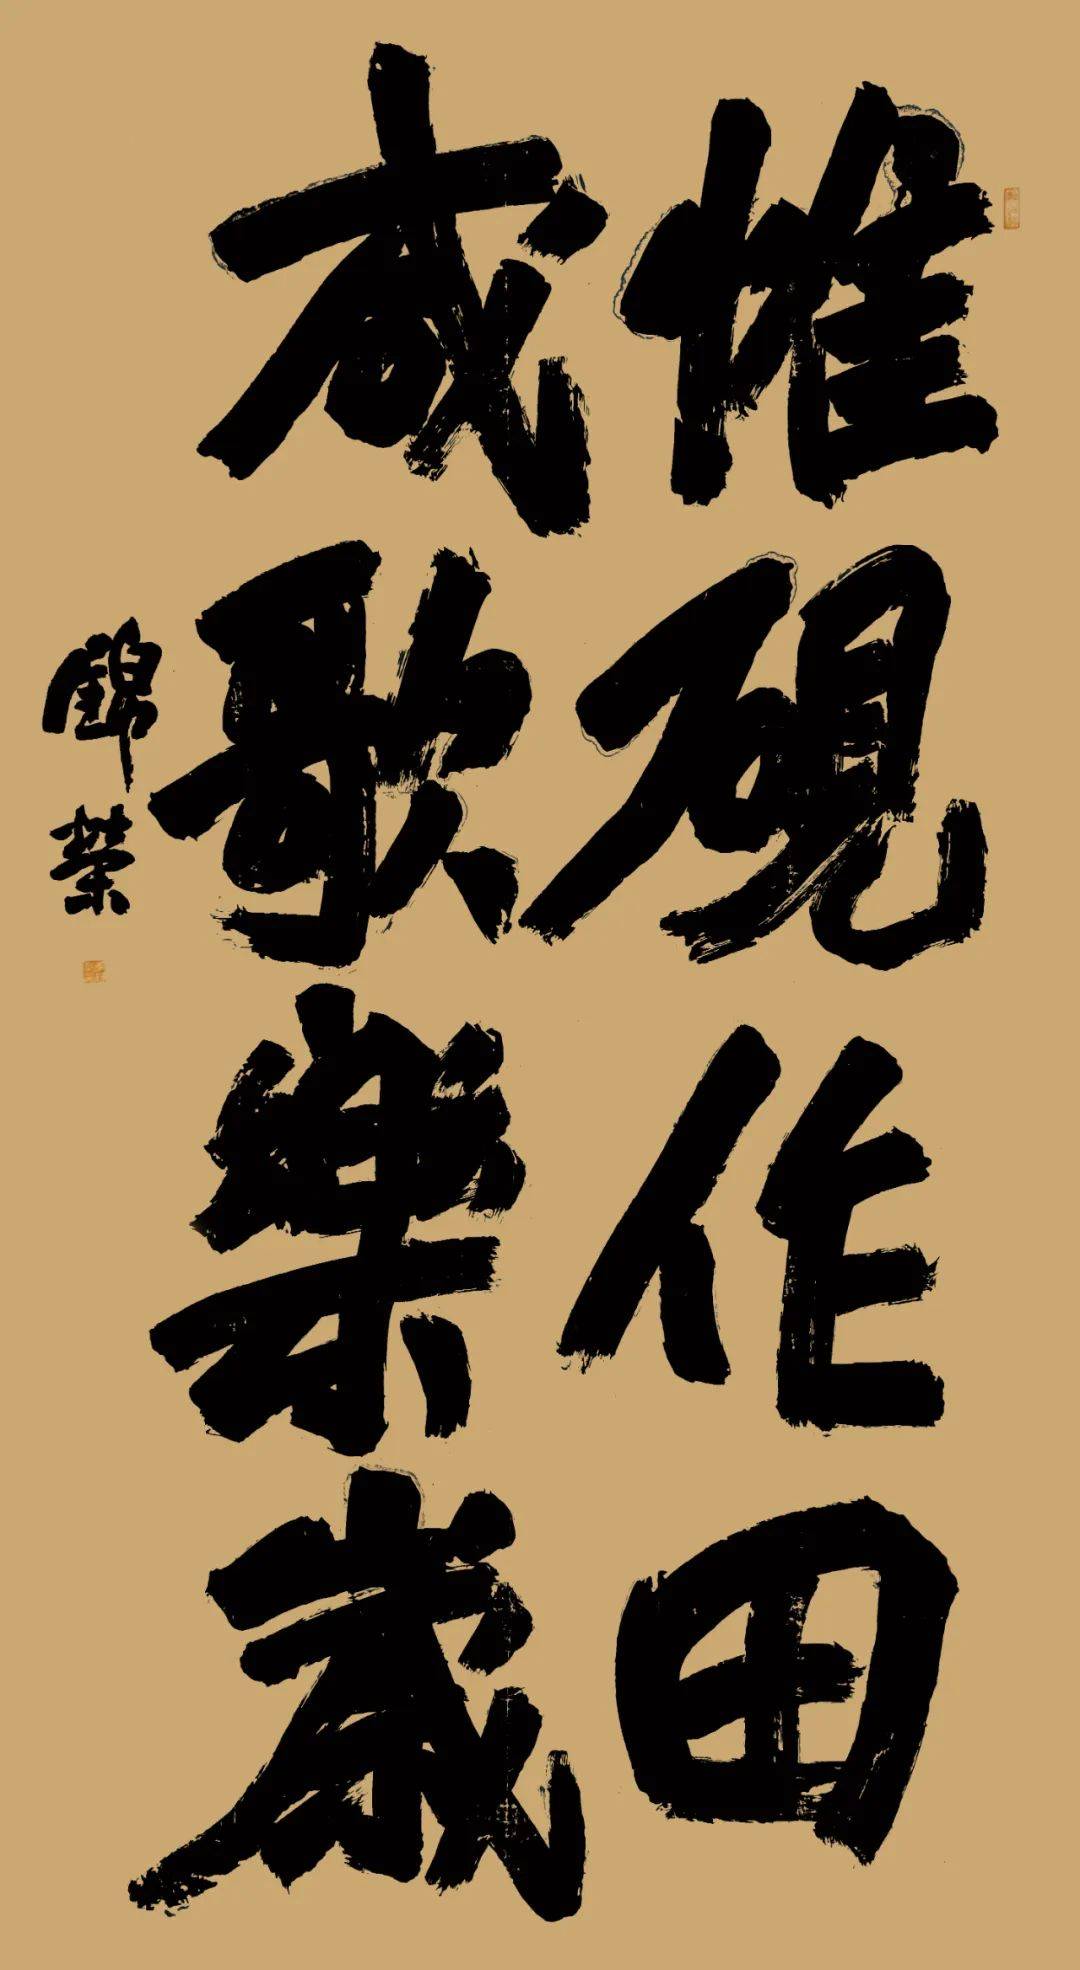 惟砚作田
成歌樂歲
錦榮